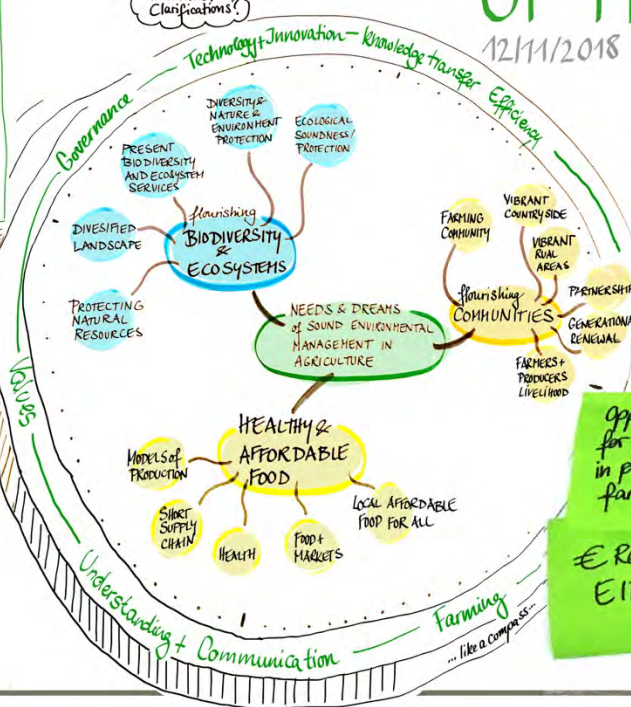 Clarifications?
12/11/2018
Governance
Technology + Innovation – knowledge transfer Efficiency
DIVERSITY &
NATURE &
ENVIRONMENT
PROTECTION
ECOLOGICAL
SOUNDNESS/
PROTECTION
PRESENT
BIODIVERSITY
AND ECOSYSTEM
SERVICES
DIVESIFIED
LANDSCAPE
PROTECTING
NATURAL
RESOURCES
flourishing
BIODIVERSITY
&
ECOSYSTEMS
NEEDS & DREAMS
of SOUND ENVIRONMENTAL
MANAGEMENT IN
AGRICULTURE
FARMING
COMMUNITY
VIBRANT
COUNTRYSIDE
VIBRANT
RUAL
AREAS
PARTNERSHIP
GENERATIONAL
RENEWAL
FARMERS +
PRODUCERS
LIVELIHOOD
flourishing
COMMUNITIES
HEALTHY &
AFFORDABLE
FOOD
MODELS of
PRODUCTION
SHORT
SUPPLY
CHAIN
HEALTH
FOOD +
MARKETS
LOCAL AFFORDABLE
FOOD FOR ALL
Values
Understanding + Communication
Farming
... like a compass...
for
in
€